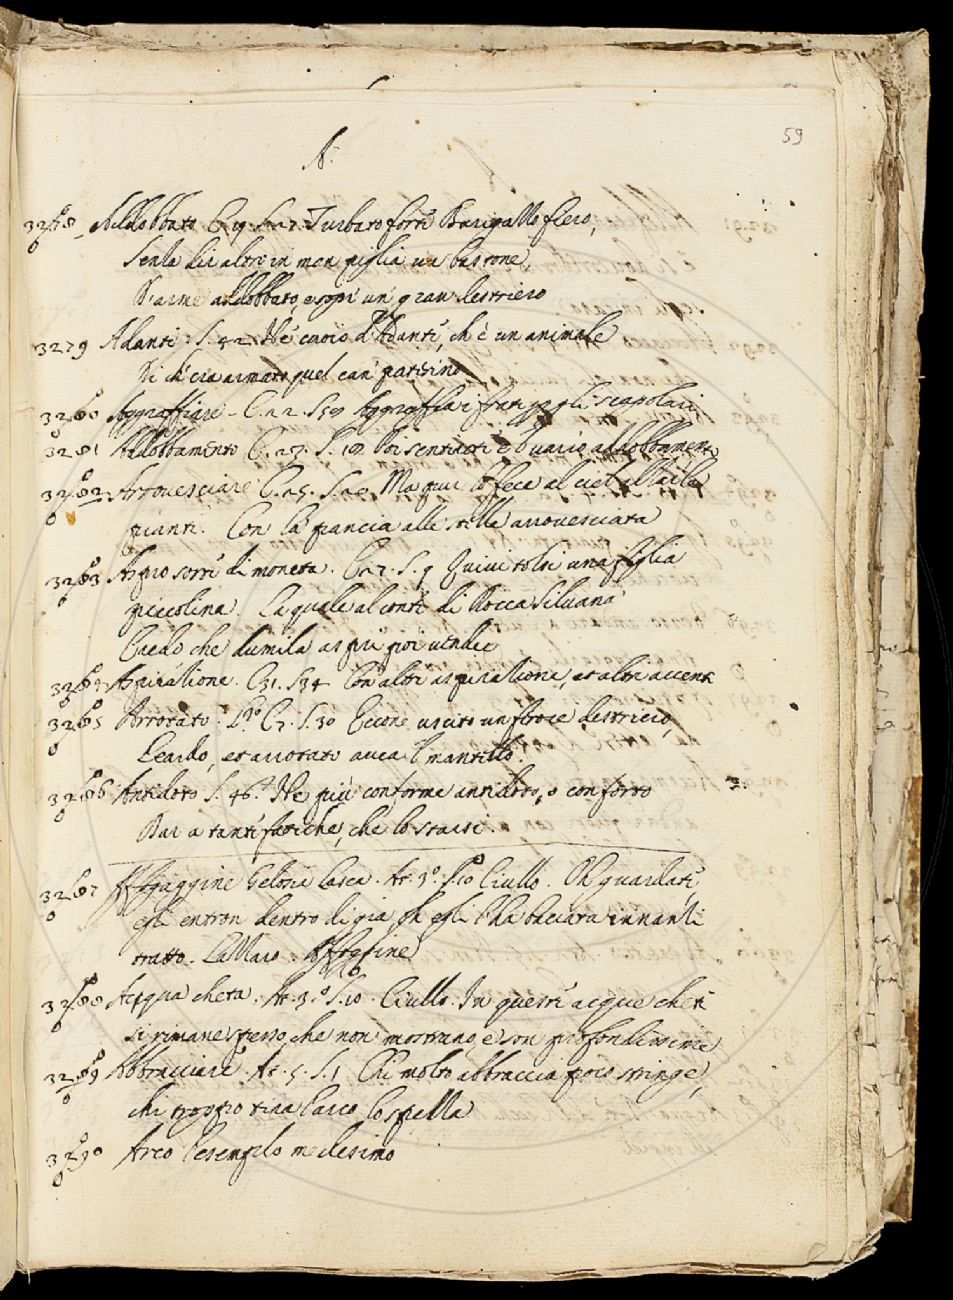 59
A.
3278 Addobbato C. 19. S. 27. Turbato forte Barigallo fiero,
Senza dir altro in man piglia un bastone,
D'arme addobbato, e sopr' un gran destriero
3279 Adanti. S. 42. Né cuoio d'Adanti, ch'è un animale
Di ch'era armato quel can patisino
3280 Aggraffiare. C. 22. S. 59 Aggraffia i frati gli scapolari
3281 Addobbamento C. 23. S. 19. Poi sentirete è vario addobbamento
3282 Arrovesciare C. 25. S. 20. Ma pur lo fece al ciel
pianti. Con la pancia alle stelle arrovesciata
3283 Aspro sorte di moneta. C. 27. S. 9 Quivi tolsi una figlia
piccolina. La quale al conte di Rocca Silvana
Credo che dumila aspri poi vendei
3284 Aspirazione. C. 31. S. 34 Con altri aspirazione, et altri accenti
3285 Arrotato. L.° C. 7. S. 30 Eccone uscito un feroce destriero,
Leardo, et arrotato avea 'l mantello.
3286 Antidoto S. 46. Né più conforme antidoto, o conforto
Dar a tante fatiche, che lo starsi
3287 Affogaggine Gelosia Lasca. At. 3.° S. 10 Ciullo. Oh guardate
egli entron dentro di gia, oh egli l'ha baciata innanzi
tratto. Lazzaro. Affogagine
3288 Acqua cheta. At. 3.° S. 10. Ciullo. In queste acque chete
si rimane spesso, che non mostrano, e son profondissime
3289 Abbracciare. At. 5. S. 1 Chi molto abbraccia poco stringe,
chi troppo tira l'arco, lo spezza
3290 Arco l'esemplo medesimo